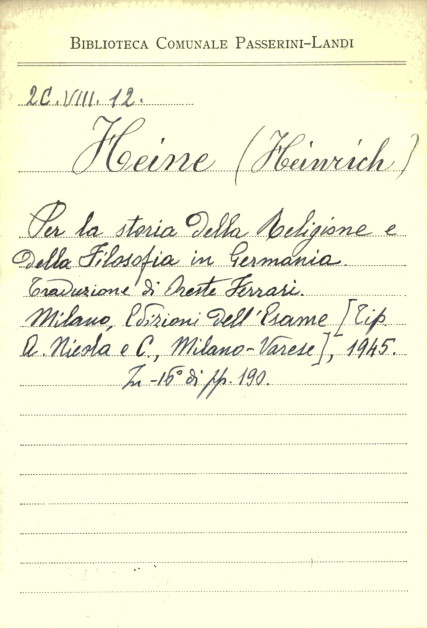 BIBLIOTECA COMUNALE PASSERINI-LANDI
2C.VIII. 12.
Heine (Heinrich)
Per la storia della Religione e
della Filosofia in Germania.
Traduzione di Oreste Ferrari.
Milano, Edizioni dell'Esame [Tip.
A. Nicola e C., Milano-Varese], 1945.
In-16° di pp. 190.